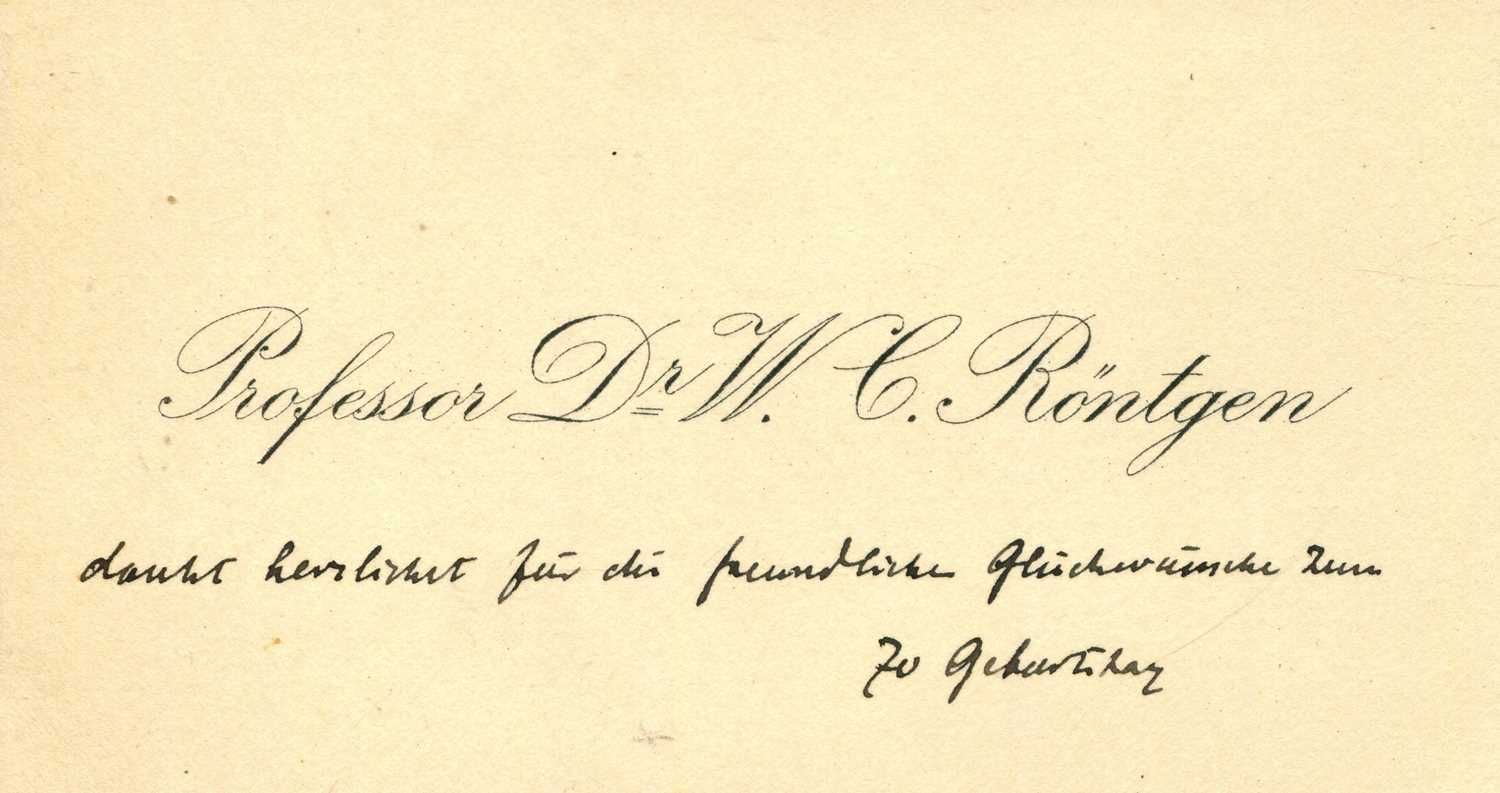 Professor Dr W. C. Röntgen
dankt herzlichst für die freundlichen Glückwünsche zum
70 Geburtstag